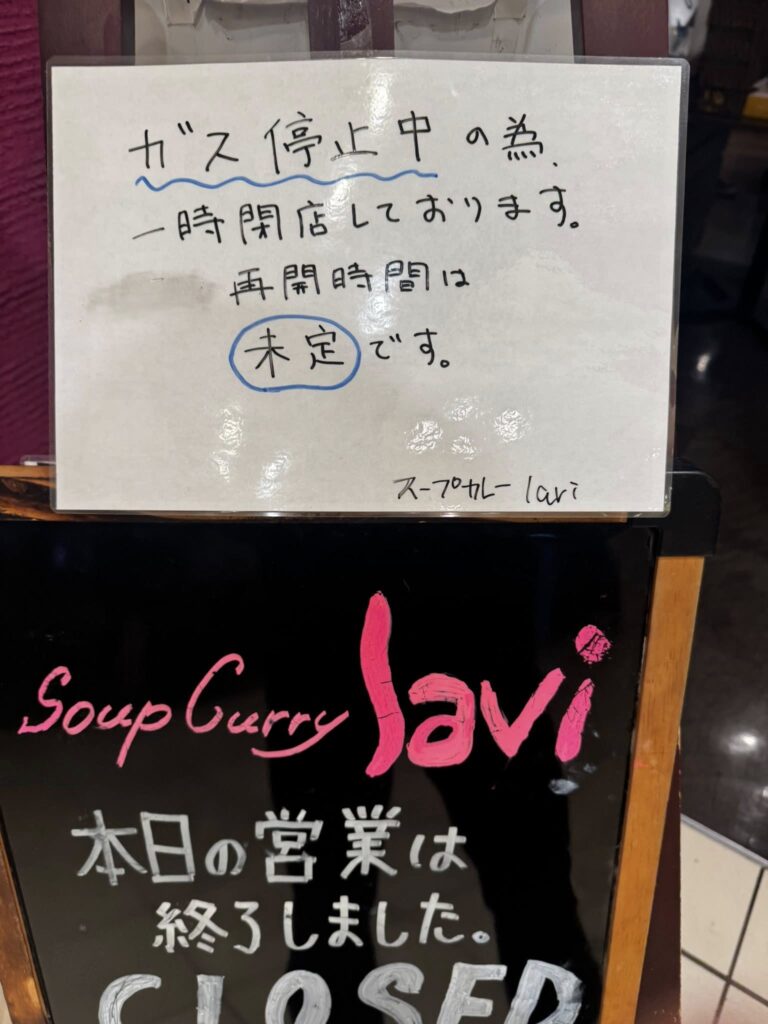 ガス停止中の為、
一時閉店しております。
再開時間は
未定です。
スープカレー lavi
Soup Curry lavi
本日の営業は
終了しました。
CLOSED